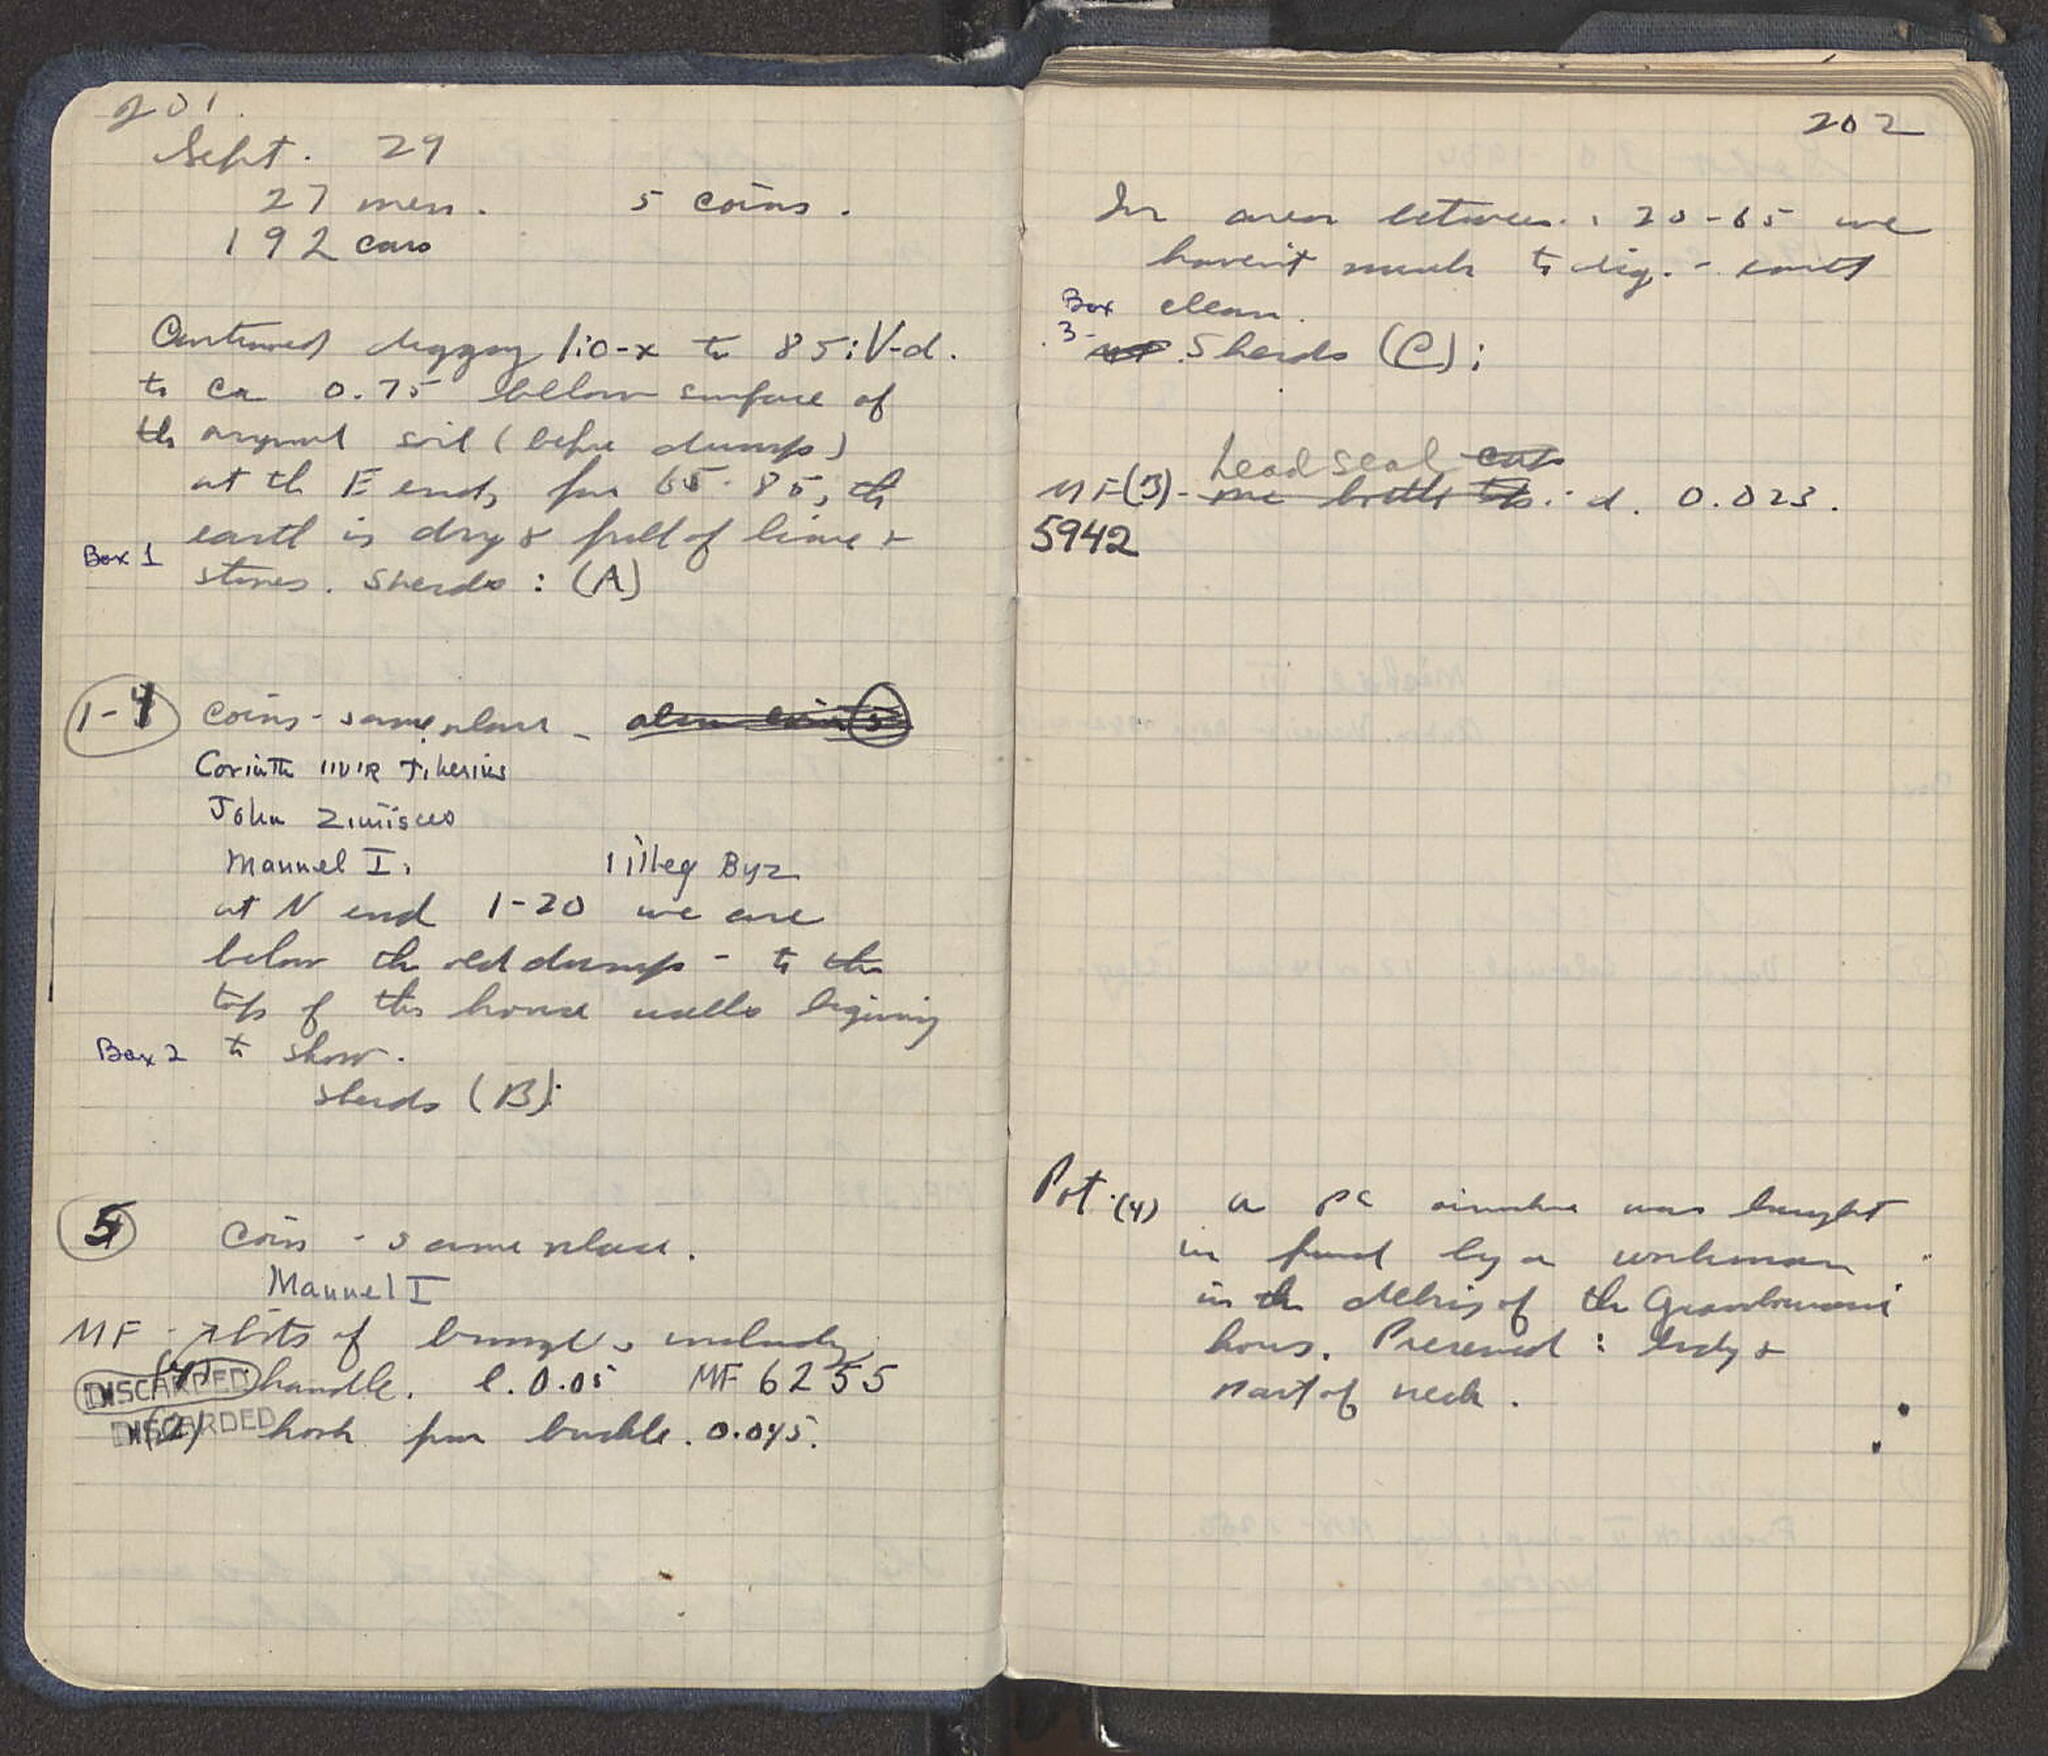 201.
Sept. 29
27 men. 5 coins.
192 cars
Continued digging 1:0-x to 85:V-d.
to ca 0.75 below surface of
the original soil (before dumps)
at the E end, from 65-85, the
earth is dry & full of lime &
Box 1
stones. Sherds: (A)
1-4 coins - same place - also coin (5)
Corinth IIVIR Tiberius
John Zimisces
Manuel I. 1 illeg Byz
at N end 1-20 we are
below the old dumps - to the
tops of the house walls begining
Box 2 to show.
sherds (B):
5 Coin - same place.
Manuel I
MF - bits of bronze, including
DISCARDED (1) handle. l. 0.05 MF 6255
DISCARDED (2) hook from buckle. 0.045.
202
In area between: 20-65 we
haven't much to dig. - earth
Box clean.
3- Sherds (C):
Lead seal
MF(3)- one bottle : d. 0.023.
5942
Pot.(4) a PC oinochoe was brought
in found by a workman
in the debris of the
house. Preserved: body &
part of neck.